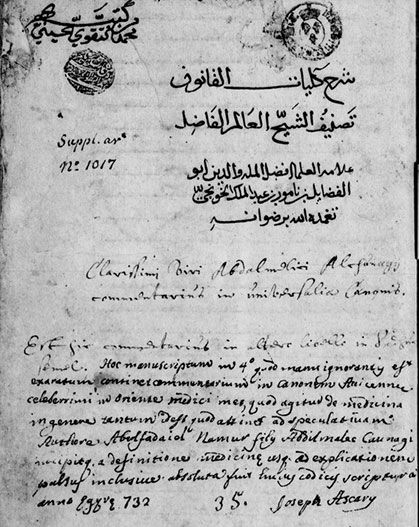 من كتب
محمد التقوي الحسيني
شرح كليات القانون
تصنيف الشيخ العالم الفاضل
علامه العلما افضل المله والدين ابو
الفضايل بن نامور بن عبد الملك الخونجي
تغمده الله برضوانه
Suppl. ar.
Nº 1017
Clarissimi Viri Abdalmelici Alchunagy
commentarius in universalia Canonis.
Est hic commentarius in altero libello in
semel. Hoc manuscriptum in 4º quod manus ignorantis est
exaratum continet commentarium in canonem Auicenne
celeberrimi in oriente medici in eo, quod agitur de medicina
in genere tantum idest quod attinet ad speculatiuam
Authore Abolfadaiol Namur filÿ Abdilmalec Cunagi
incipitq. a definitione medicinę usq. ad explicationem
pulsus inclusiue absoluta fuit huius codicis scriptura
anno Egyrę 732 35. Joseph Ascary